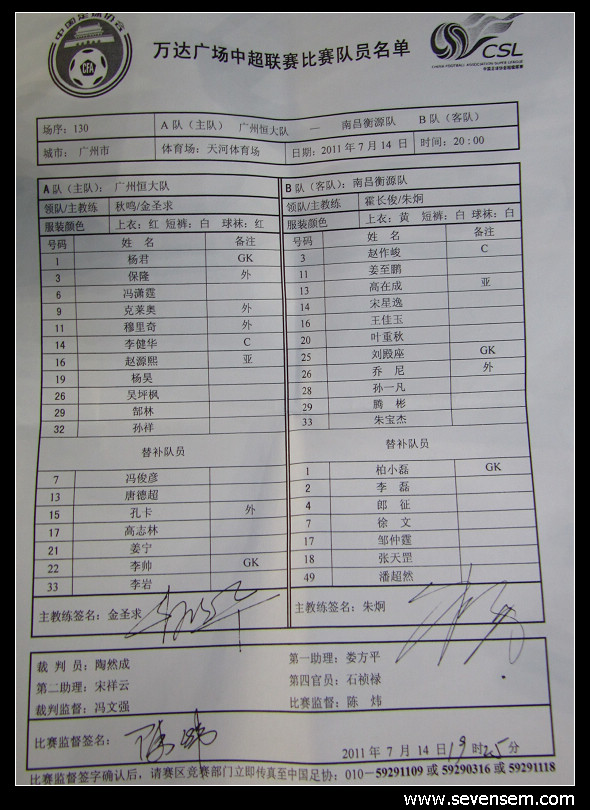 中国足球协会
CFA
万达广场中超联赛比赛队员名单
CSL
CHINA FOOTBALL ASSOCIATION SUPER LEAGUE
中国足球协会超级联赛
场序：130 A 队（主队） 广州恒大队 — 南昌衡源队 B 队（客队）
城市： 广州市 体育场：天河体育场 日期：2011 年 7 月 14 日 时间：20：00
A 队（主队）： 广州恒大队
领队/主教练 秋鸣/金圣求
服装颜色 上衣：红 短裤：白 球袜：红
号码 姓 名 备注
1 杨君 GK
3 保隆 外
6 冯潇霆
9 克莱奥 外
11 穆里奇 外
14 李健华 C
16 赵源熙 亚
19 杨昊
26 吴坪枫
29 郜林
32 孙祥
替补队员
7 冯俊彦
13 唐德超
15 孔卡 外
17 高志林
21 姜宁
22 李帅 GK
33 李岩
主教练签名：金圣求
B 队（客队）：南昌衡源队
领队/主教练 霍长俊/朱炯
服装颜色 上衣：黄 短裤：白 球袜：白
号码 姓 名 备注
3 赵作峻 C
11 姜至鹏
13 高在成 亚
14 宋星逸
16 王佳玉
20 叶重秋
25 刘殿座 GK
26 乔 尼 外
28 孙一凡
29 腾 彬
33 朱宝杰
替补队员
1 柏小磊 GK
2 李 磊
4 郎 征
7 徐 文
17 邹仲霆
18 张天罡
49 潘超然
主教练签名：朱炯
裁 判 员：陶然成 第一助理：娄方平
第二助理：宋祥云 第四官员：石祯禄
裁判监督：冯文强 比赛监督：陈 炜
比赛监督签名： 陈炜
2011 年 7 月 14 日 19 时 25 分
比赛监督签字确认后，请赛区竞赛部门立即传真至中国足协：010－59291109 或 59290316 或 59291118
www.sevensem.com